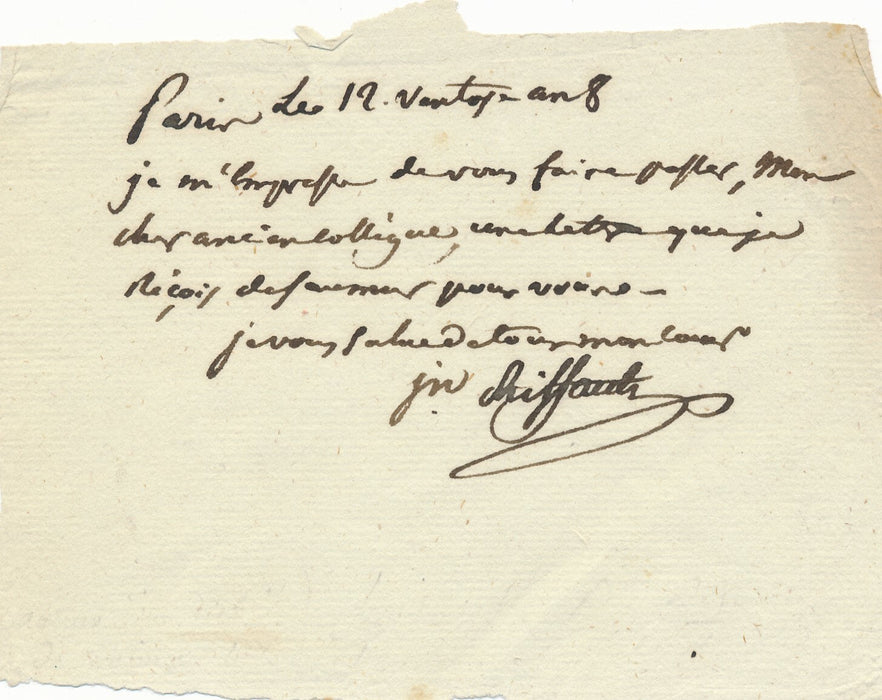 Paris Le 12. Ventose an 8
je m'Empresse de vous faire passer, Mon
cher ancien collègue, une lettre que je
Réçois de Saumur pour vous -
je vous Salue De tout mon Coeur
jn